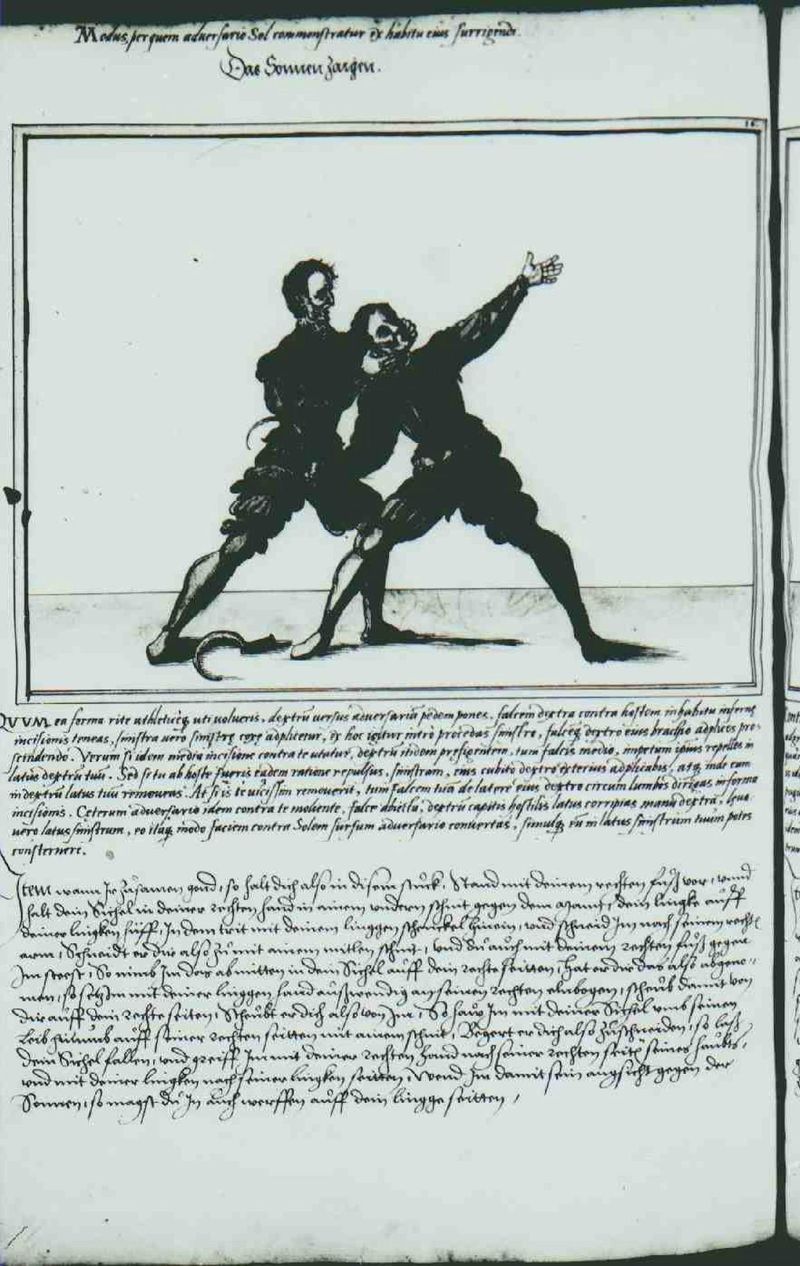 Modus, per quem adversario Sol commonstratur ex habitu eius surrigendi.
Das Sonnen Zaigen.
16.
QUUM ea forma rite athleticeq, uti volueris, dextrū versus adversariū pedem pones, falcem dextra contra hostem in habitu infernę
incisionis teneas, sinistra vero sinistrę coxę adplicetur, ex hoc igitur intro procedas sinistro, falceq, dextro eius brachio adplices pro-
scindendo. Verum si idem media incisione contra te utatur, dextrū itidem prefigentem, tum falcis medio, impetum ipsius repelles in
latus dextrū tuū. Sed si tu ab hoste fueris eadem ratione repulsus, sinistram, eius cubito dextro exterius adplicabis, atq, inde eum
in dextrū latus tuū removeas. At si is te vicissim removerit, tum falcem tuā de latere eius dextro circum lumbos dirigas in forma
incisionis. Ceterum adversario idem contra te molente, falce abiecta, dextrū capitis hostilis latus corripias manu dextra, leva
vero latus sinistrum, eo itaq, modo faciem contra Solem sursum adversario convertas, simulq, eū in latus sinistrum tuum potes
consternere.
Item wann Ir zusamen gond, so halt dich also in disem stuck, Stand mit deinem rechten fuß vor, vnnd
halt dein Sichel in deiner rechten hand in ainem vndern schnit gegen dem mann, dein lingke auff
deiner lingken hufft, In dem trit mit deinem linggen schenckel hinein, vnd schneid Im nach seinem recht
arm, Schneidt er dir also zu mit ainem mitlen schnit, vnd du auch mit deinem rechten fuß gegen
Im steest, So nimb Im das ab mitten in dem Sichel auff dein rechte seitten, hat er dir das also abgeno-
men, so setz Im mit deiner linggen hand außwendig an seinen rechten elnbogen, scheub damit von
dir auff dein rechte seiten, Scheubt er dich also von Im, So haw Im mit deiner Sichel vmb seinen
Leib auff seiner rechten seitten mit ainem schnit, Begert er dich also zuschneiden, so laß
dein Sichel fallen, vnd greiff Im mit deiner rechten hand nach seiner rechten seiten seines haubts,
vnd mit deiner lingken nach seiner lingken seitten, Wend Im damit sein angsicht gegen der
Sonnen, so magst du In auch werffen auff dein lingge seitten,